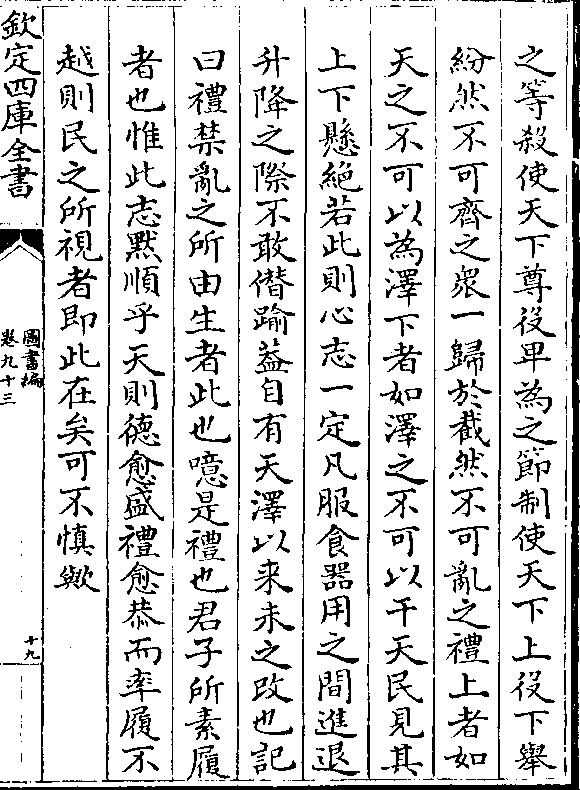 之等殺使天下尊役卑為之節制使天下上役下舉
紛然不可齊之衆一歸於截然不可亂之禮上者如
天之不可以為澤下者如澤之不可以干天民見其
上下懸絕若此則心志一定凡服食器用之間進退
升降之際不敢僭踰葢自有天澤以来未之改也記
曰禮禁亂之所由生者此也噫是禮也君子所素履
者也惟此志默順乎天則徳愈盛禮愈恭而率履不
越則民之所視者即此在矣可不慎歟
欽定四庫全書
圖書編
卷九十三
十九